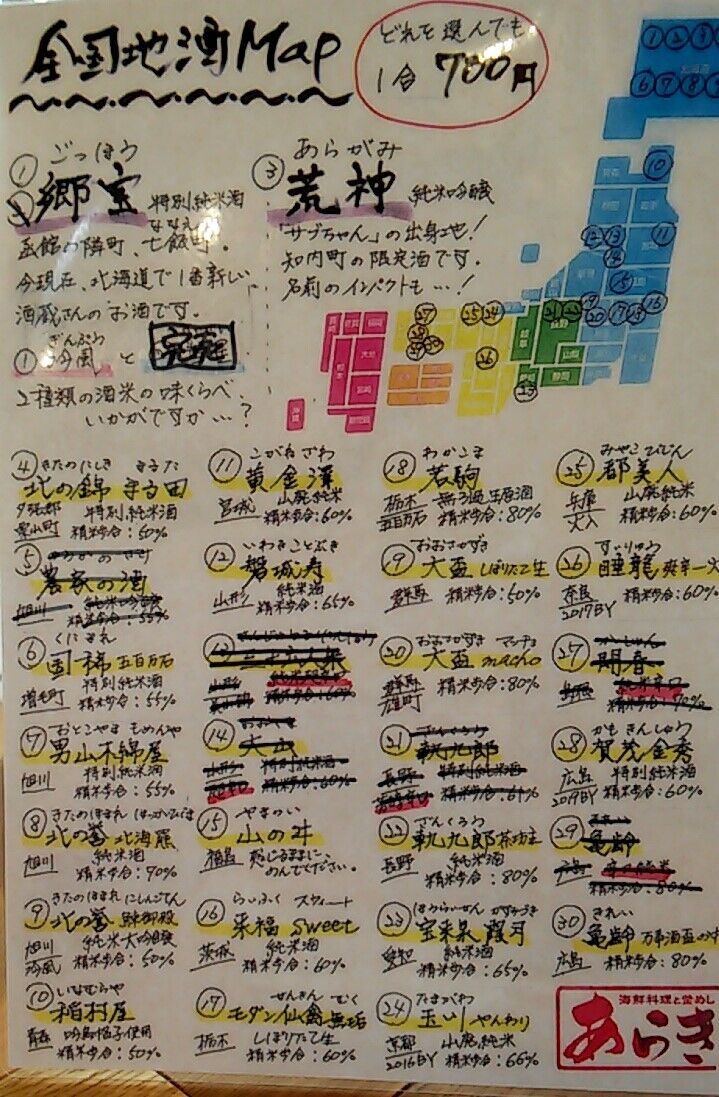 全国地酒Map
どれを選んでも
1合 700円
① ごっほう
郷宝 特別純米酒
ななえ
函館の隣町、七飯町。
今現在、北海道で1番新しい
酒蔵さんのお酒です。
ぎんぷう
① 吟風 と 完売
2種類の酒米の味くらべ
いかがですか…?
③ あらがみ
荒神 純米吟醸
「サブちゃん」の出身地!
知内町の限定酒です。
名前のインパクトも…!
④ きたのにしき まるた
北の錦 まる田
夕張郡 特別純米酒
栗山町 精米歩合:60%
⑤
農家の酒
旭川 純米吟醸
精米歩合:55%
⑥ くにまれ
国稀 五百万石
増毛町 特別純米酒
精米歩合:55%
⑦ おとこやま もめんや
男山木綿屋
旭川 特別純米酒
精米歩合:55%
⑧ きたのほまれ
北の誉 北海熊
旭川 純米酒
精米歩合:90%
⑨ きたのほまれ にしんごてん
北の誉 鰊御殿
旭川 純米大吟醸
吟風 精米歩合:50%
⑩ いなむらや
稲村屋
青森 吟烏帽子使用
精米歩合:50%
⑪ こがねざわ
黄金澤
宮城 山廃純米
精米歩合:60%
⑫ いわきことぶき
磐城寿
山形 純米酒
精米歩合:65%
⑬
山形
精米歩合:60%
⑭ おおやま
大山
山形 特別純米酒
精米歩合:60%
⑮ やまのい
山の井
福島 感じるままに、
のんでください。
⑯ らいふく スウィート
来福 Sweet
茨城 純米酒
精米歩合:60%
⑰ せんきん むく
モダン仙禽 無垢
栃木 しぼりたて生
精米歩合:60%
⑱ わかこま
若駒
栃木 無ろ過生原酒
五百万石 精米歩合:80%
⑲ おおさかずき
大盃 しぼりたて生
群馬 精米歩合:50%
⑳ おおさかずき マッチョ
大盃 macho
群馬 精米歩合:80%
雄町
㉑ ざんくろう
斬九郎
長野 特別純米酒
精米歩合:61%
㉒ ざんくろう
斬九郎 茶坊主
長野 純米酒
精米歩合:80%
㉓ ほうらいせん かすみづき
宝来泉 霞月
愛知 純米酒
精米歩合:65%
㉔ たまがわ
玉川 やんわり
京都 山廃純米
2016BY 精米歩合:66%
㉕ みやこびじん
都美人
兵庫 山廃純米
精米歩合:60%
㉖ すいりゅう
睡龍
奈良 精米歩合:60%
2017BY
㉗ かいしゅん
開春
純米辛口
精米歩合:70%
㉘ かも きんしゅう
賀茂金秀
広島 特別純米酒
2019BY 精米歩合:60%
㉙ きれい
亀齢
広島 辛口純米
精米歩合:80%
㉚ きれい
亀齢
広島 精米歩合:80%
海鮮料理と釜めし
あらき